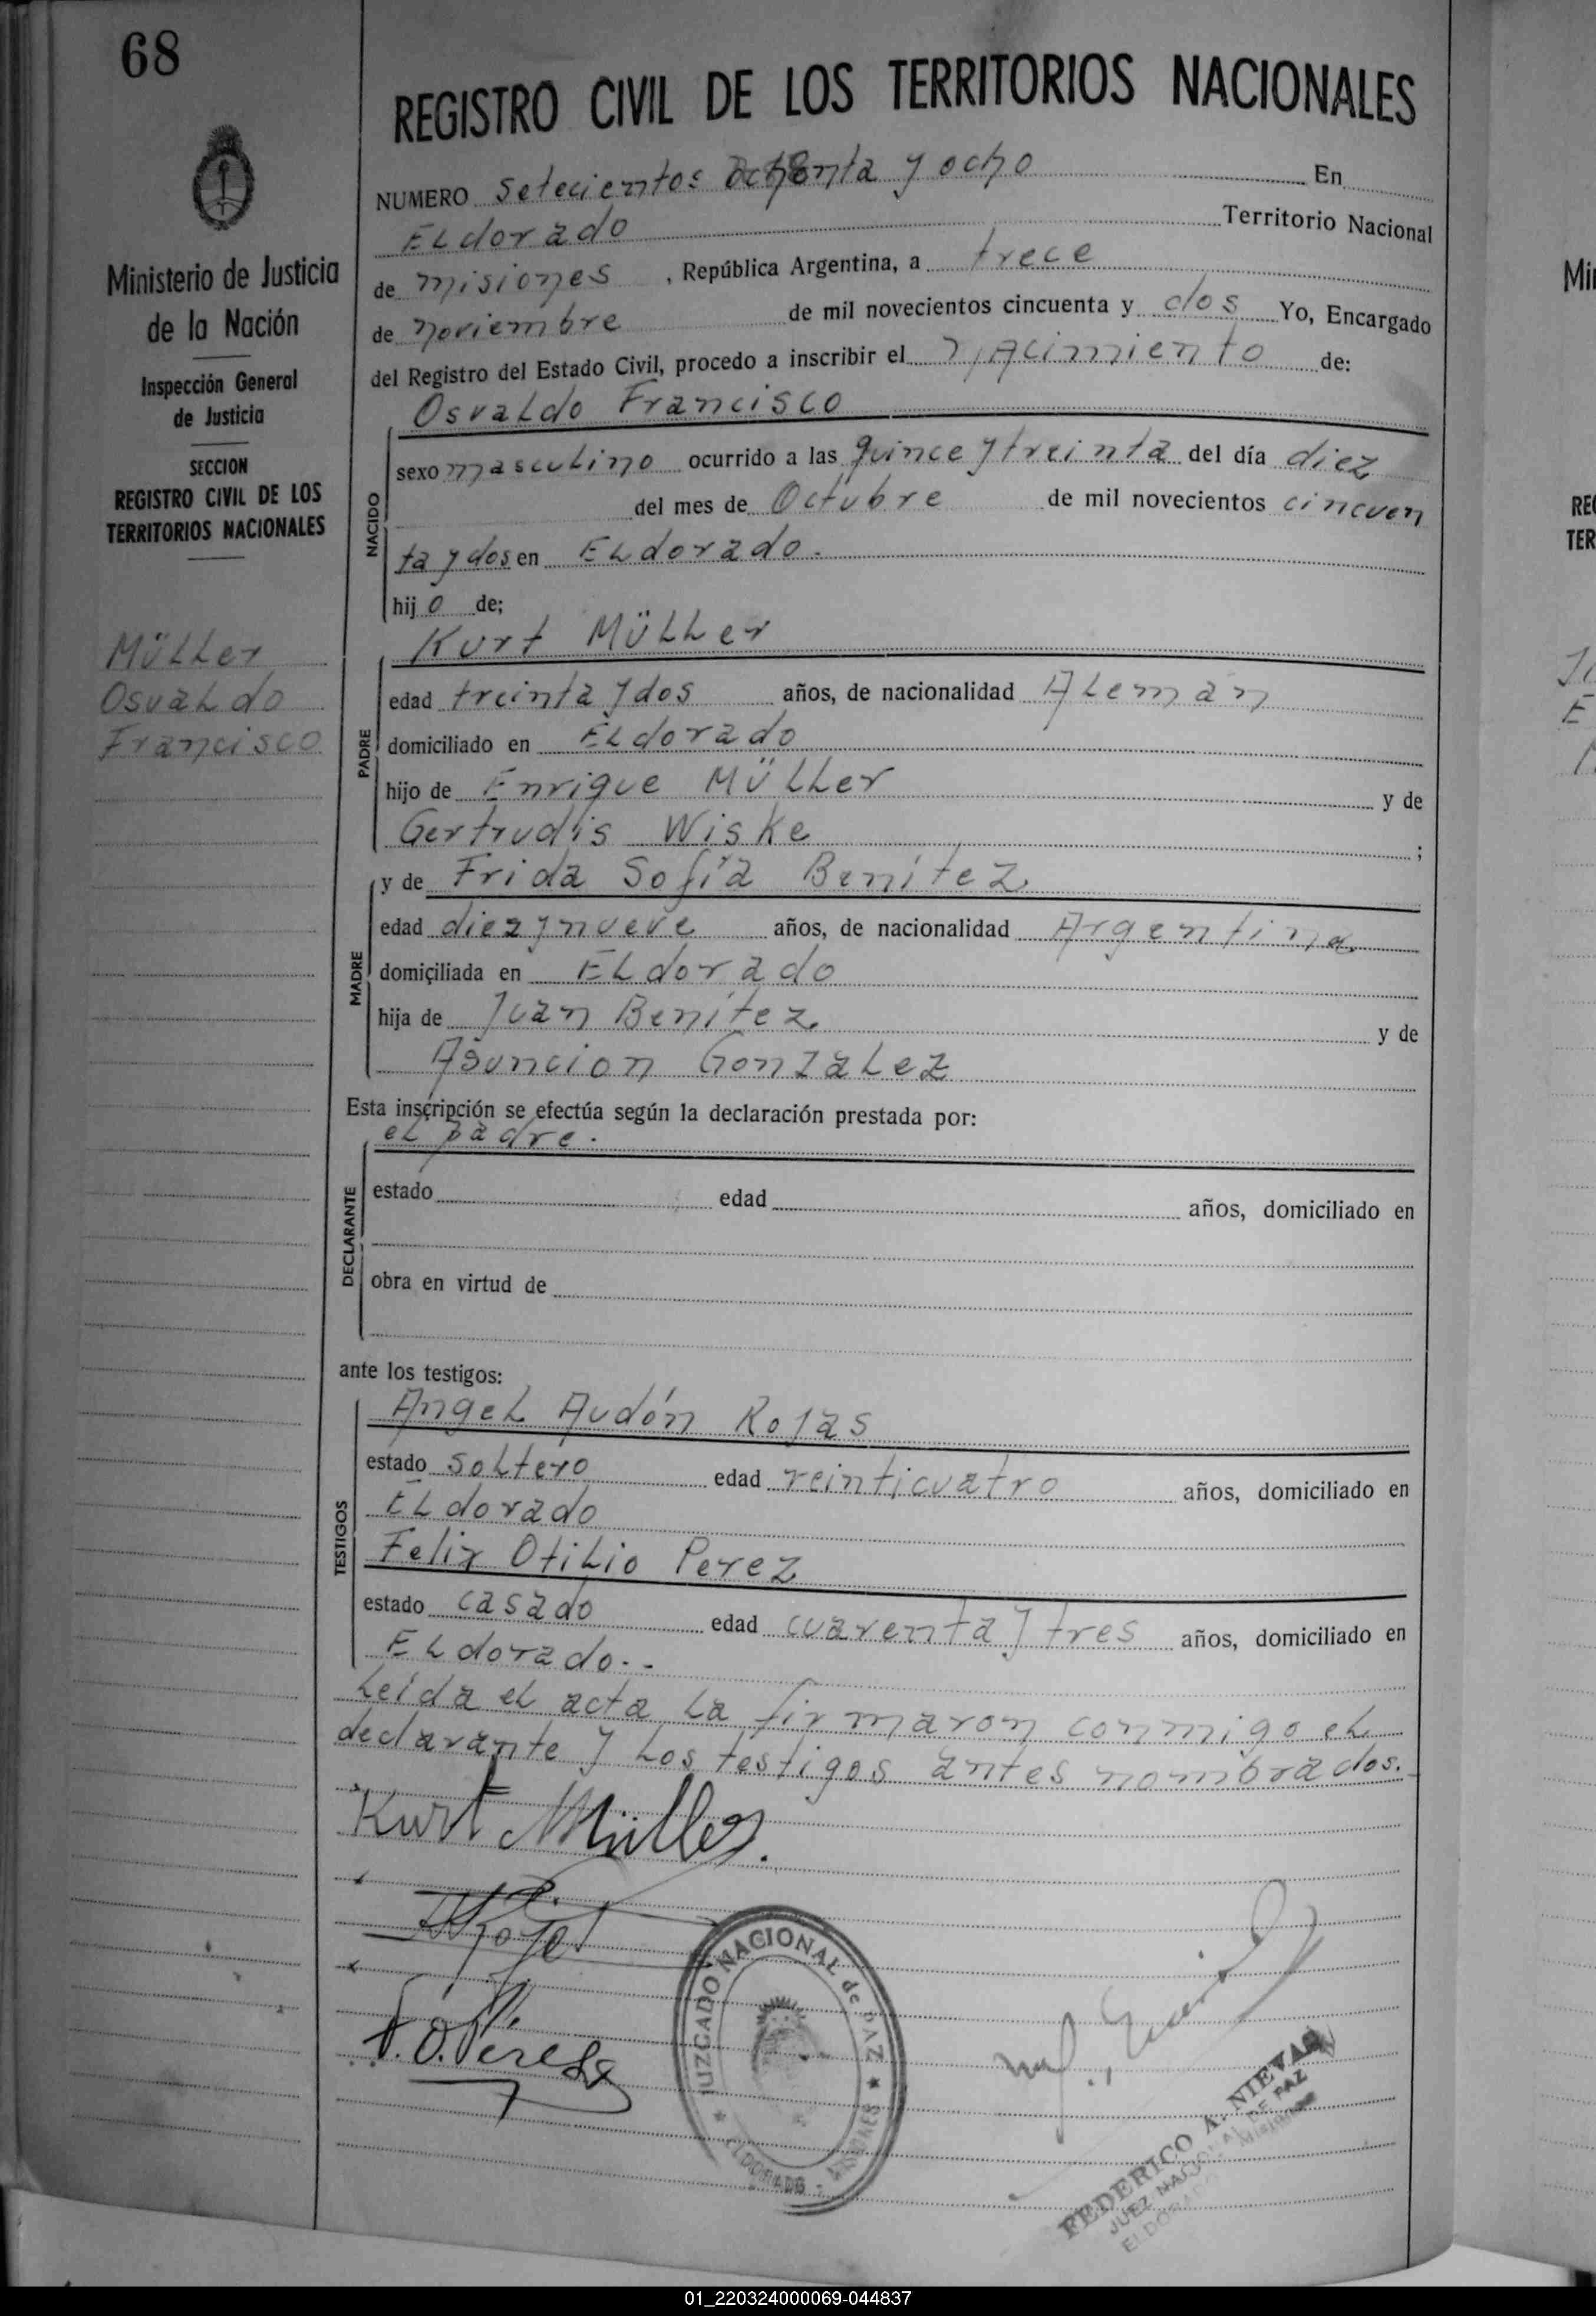 68
REGISTRO CIVIL DE LOS TERRITORIOS NACIONALES
NUMERO setecientos ochenta y ocho En
ELdorado Territorio Nacional
de misiones, República Argentina, a trece
de noviembre de mil novecientos cincuenta y dos Yo, Encargado
del Registro del Estado Civil, procedo a inscribir el nacimiento de:
Osvaldo Francisco
NACIDO
sexo masculino ocurrido a las quince y treinta del día diez
del mes de Octubre de mil novecientos cincuen
ta y dos en ELdorado.
hijo de;
Kurt Müller
PADRE
edad treinta y dos años, de nacionalidad Aleman
domiciliado en ELdorado
hijo de Enrique Müller y de
Gertrudis Wiske ;
MADRE
y de Frida Sofía Benítez
edad diez y nueve años, de nacionalidad Argentina
domiciliada en ELdorado
hija de Juan Benítez y de
Asuncion Gonzalez
Esta inscripción se efectúa según la declaración prestada por:
el padre.
DECLARANTE
estado edad años, domiciliado en
obra en virtud de
ante los testigos:
TESTIGOS
Angel Audón Rojas
estado soltero edad veinticuatro años, domiciliado en
ELdorado
Felix Otilio Perez
estado casado edad cuarenta y tres años, domiciliado en
ELdorado.--
Leída el acta la firmaron conmigo el
declarante y los testigos antes nombrados.
Kurt Müller.
F. O. Perez
JUZGADO NACIONAL de PAZ
ELDORADO - MISIONES
FEDERICO A. NIEVAS
JUEZ NACIONAL DE PAZ
ELDORADO Misiones
Ministerio de Justicia
de la Nación
Inspección General
de Justicia
SECCION
REGISTRO CIVIL DE LOS
TERRITORIOS NACIONALES
Müller
Osvaldo
Francisco
Mi
RE
TER
01_220324000069-044837